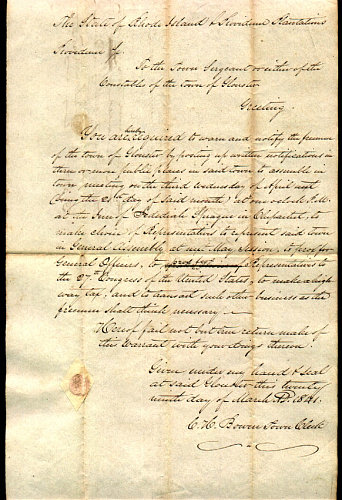 The State of Rhode Island & Providence Plantations
Providence Sc.
To the Town Sergeant or either of the
Constables of the town of Glocester
Greeting
You are hereby required to warn and notify the freemen
of the town of Glocester by posting up written notifications in
three or more public places in said town to assemble in
town meeting on the third wednesday of April next
(being the 21st day of said month) at one oclock P.M.
at the Inn of Zedediah Sprague in Chepachet, to
make choice of Representatives to represent said town
in General Assembly at next May session, to prox for
General Officers, to Representatives to
the 27th Congress of the United States, to make a high
way tax, and to transact such other business as the
freemen shall think necessary.
Hereof fail not but true return make of
this warrant with your doings thereon
Given under my hand & seal
at said Glocester this twenty
ninth day of March AD. 1841.
C. H. Bowen Town Clerk